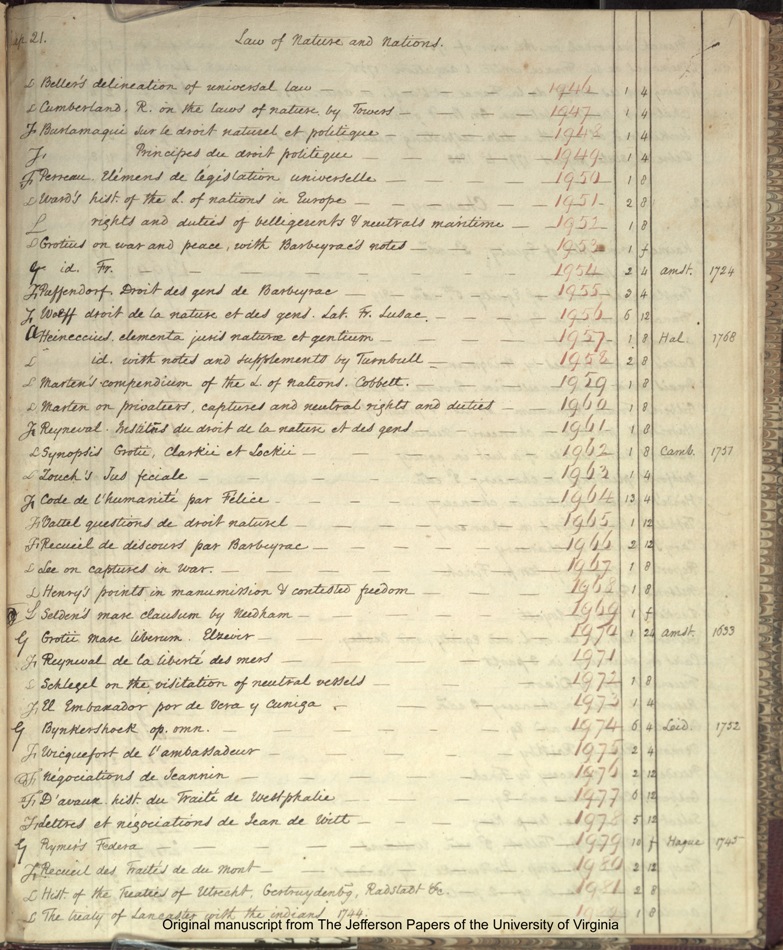 ap 21. Law of Nature and Nations.
L Beller's delineation of universal law — 1946 1 4
L Cumberland. R. on the laws of nature by Towers — 1947 1 4
F. Burlamaqui sur le droit naturel et politique — 1948 1 4
F. Principes du droit politique — 1949 1 4
F. Perreau. Elémens de legislation universelle — 1950 1 8
L Ward's hist. of the L. of nations in Europe — 1951 2 8
L rights and duties of belligerents & neutrals maritime — 1952 1 8
L Grotius on war and peace, with Barbeyrac's notes — 1953 1 f
G id. Fr. — 1954 2 4 Amst. 1724
F. Puffendorf. Droit des gens de Barbeyrac — 1955 3 4
F. Wolff droit de la nature et des gens. Lat. Fr. Luzac. 1956 6 12
G Heineccius, elementa juris naturæ et gentium — 1957 1 8 Hal. 1768
L id. with notes and supplements by Turnbull — 1958 2 8
L Marten's compendium of the L. of nations. Cobbett. — 1959 1 8
L Marten on privateers, captures and neutral rights and duties — 1960 1 8
F. Reyneval. Institns du droit de la nature et des gens — 1961 1 8
L Synopsis Grotii, Clarkii et Lockii — 1962 1 8 Camb. 1751
L Zouch's Jus feciale — 1963 1 4
F. Code de l'humanité par Félice — 1964 13 4
F. Vattel questions de droit naturel — 1965 1 12
F. Recueil de discours par Barbeyrac — 1966 2 12
L Lee on captures in war. — 1967 1 8
L Henry's points in manumission & contested freedom — 1968 1 8
L Selden's mare clausum by Needham — 1969 1 f
G Grotii mare liberum. Elzevir — 1970 1 24 Amst. 1633
F. Reyneval de la liberté des mers — 1971
L Schlegel on the visitation of neutral vessels — 1972 1 8
F. El Embaxador por de Vera y Cuniga — 1973 1 4
G Bynkershoek op. omn. — 1974 6 4 Leid. 1752
F. Wicquefort de l'ambassadeur — 1975 2 4
F. Négociations de Jeannin — 1976 2 12
F. D'avaux. hist. du Traité de Westphalie — 1977 6 12
F. Lettres et négociations de Jean de Witt — 1978 5 12
G Rymer's Fœdera — 1979 10 f Hague 1745
F. Recueil des Traités de du Mont — 1980 2 12
L Hist. of the Treaties of Utrecht, Gertruydenbg, Radstadt &c. 1981 2 8
L The treaty of Lancaster with the indians. 1744. 1 8
Original manuscript from The Jefferson Papers of the University of Virginia